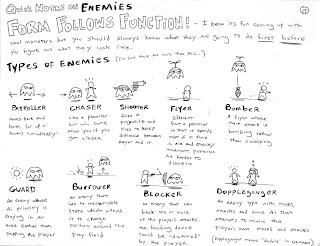 Quick Notes on ENEMIES
FORM FOLLOWS FUNCTION! - I know it's fun coming up with
cool monsters but you should always know what they are going to do first before
you figure out what they look like.
TYPES OF ENEMIES (I'm sure there are more than this...)
PATROLLER
CHASER
SHOOTER
FLYER
BOMBER
Moves back and
forth (or up +
down) mindlessly!
Like a patroller
but will come
after you if you
get close
Fires a
projectile and
tries to keep
distance between
player and it.
Different
from a patroller
in that it spends
most of its time
in air and attacks/
movement patterns
are harder to
discern
A flyer whose
main attack is
bombing rather
than swooping
GUARD
BURROWER
BLOCKER
DOPPLEGANGER
An enemy whose
#1 priority is
staying in an
area rather than
chasing the player
An enemy that
has an invulnerable
state which allows
it to change
position around the
play field
An enemy that can
block one or more
of the player's attacks.
The blocking device
could be "removed"
by the player
An enemy type with moves,
attacks and looks that
attempts to mimic the
player's own moves and attacks
(Doppleganger means "double" in German)